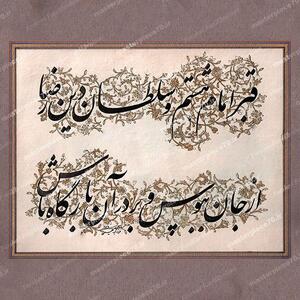 قبر امام هشتم و سلطان دین رضا
از جان ببوس و بر در آن بارگاه باش